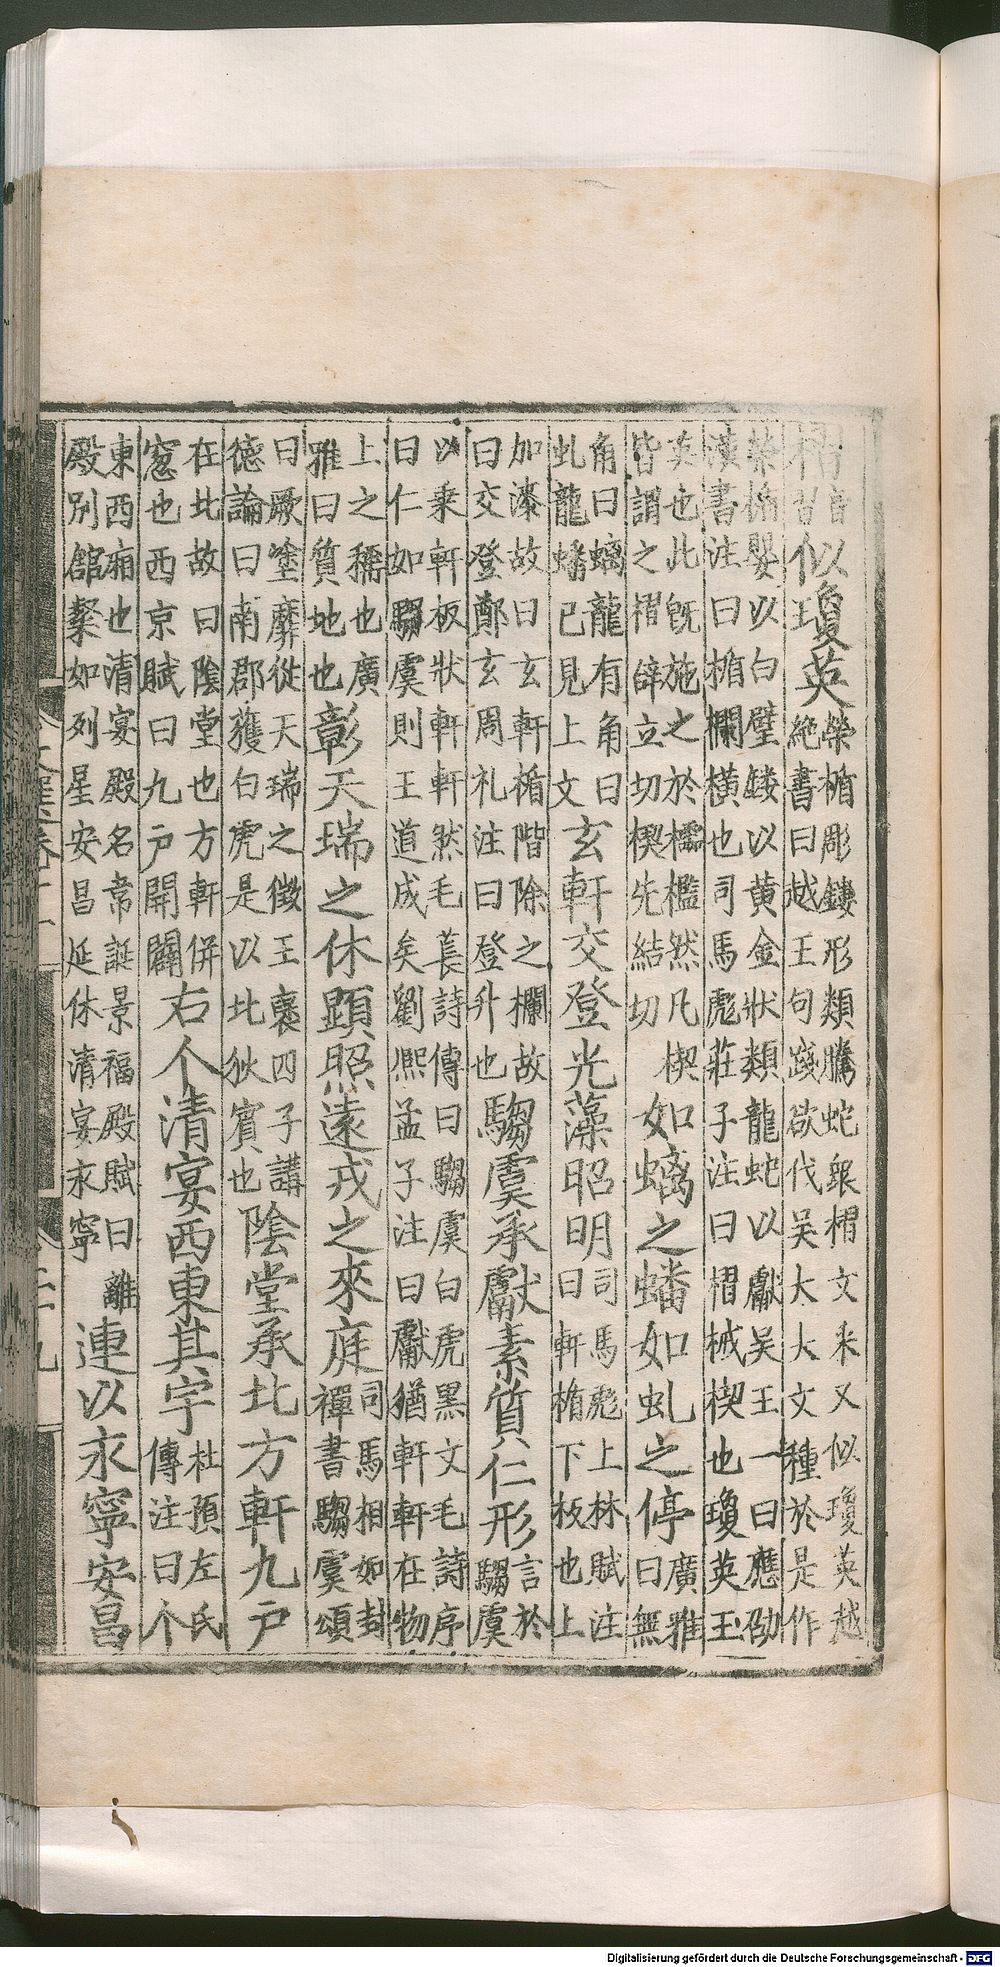 槢音習似瓊英榮楯彫鏤形類騰蛇
槢文采又似瓊英越絶書曰越王句踐欲代吳大大文種於是作
榮楯嬰以白璧鏤以黄金狀類龍蛇以獻吳王一曰應劭
漢書注曰楯欄横也司馬彪莊子注曰槢械楔也瓊英玉
英也此旣施之於櫺檻然凡楔
皆謂之槢辥立切楔先結切如螭之蟠如虬之停廣雅曰無
角曰螭龍有角曰
虬龍蟠已見上文玄軒交登光藻昭明司馬彪上林賦注曰軒楯下板也上
加漆故曰玄軒楯階除之欄故
曰交登鄭玄周礼注曰登升也騶虞承獻素質仁形言於騶虞
以乘軒板狀軒軒然毛萇詩傳曰騶虞白虎黑文毛詩序
曰仁如騶虞則王道成矣劉熙孟子注曰獻猶軒軒在物
上之稱也廣
雅曰質地也彰天瑞之休顕照遠戎之來庭司馬相如封禪書騶虞頌
曰厥塗靡從天瑞之徵王襃四子講
德論曰南郡獲白虎是以北狄賓也陰堂承北方軒九户
在北故曰陰堂也方軒併
窓也西京賦曰九户開闢右个清宴西東其宇杜預左氏傳注曰个
東西廂也清宴殿名韋誕景福殿賦曰離
殿別舘粲如列星安昌延休清宴永寧連以永寧安昌
Digitalisierung gefördert durch die Deutsche Forschungsgemeinschaft - DFG